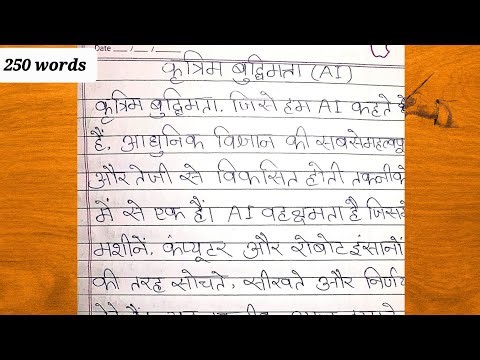 250 words
Date __/__/__
कृत्रिम बुद्धिमता (AI)
कृत्रिम बुद्धिमता, जिसे हम AI कहते
हैं, आधुनिक विज्ञान की सबसे
और तेजी से विकसित होती
में से एक हैं। AI वह क्षमता है
मशीनें, कंप्यूटर और रोबोट इंसानों
की तरह सोचते, सीखते और